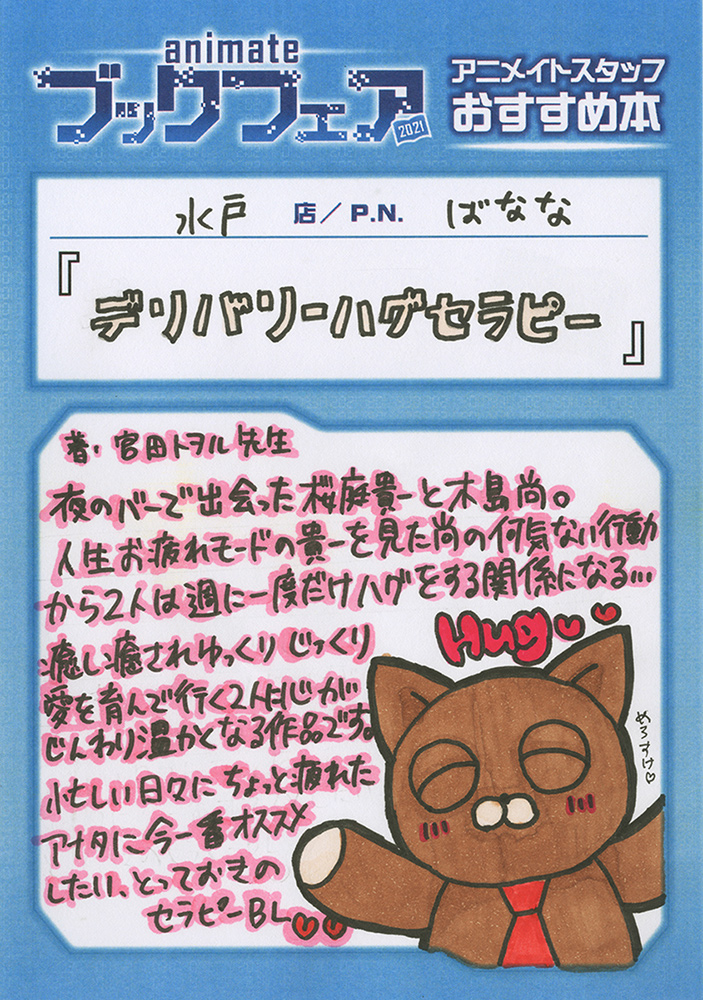 animate
ブックフェア
2021
アニメイトスタッフ
おすすめ本
水戸 店／P.N. ばなな
『デリバリーハグセラピー』
著・宮田トヲル先生
夜のバーで出会った桜庭貴一と木島尚。
人生お疲れモードの貴一を見た尚の何気ない行動
から2人は週に一度だけハグをする関係になる…
Hug
癒し癒されゆっくりじっくり
愛を育んで行く2人にじが
じんわり温かくなる作品です。
めろすけ♡
忙しい日々にちょっと疲れた
アナタに今一番オススメ
したい、とっておきの
セラピーBL